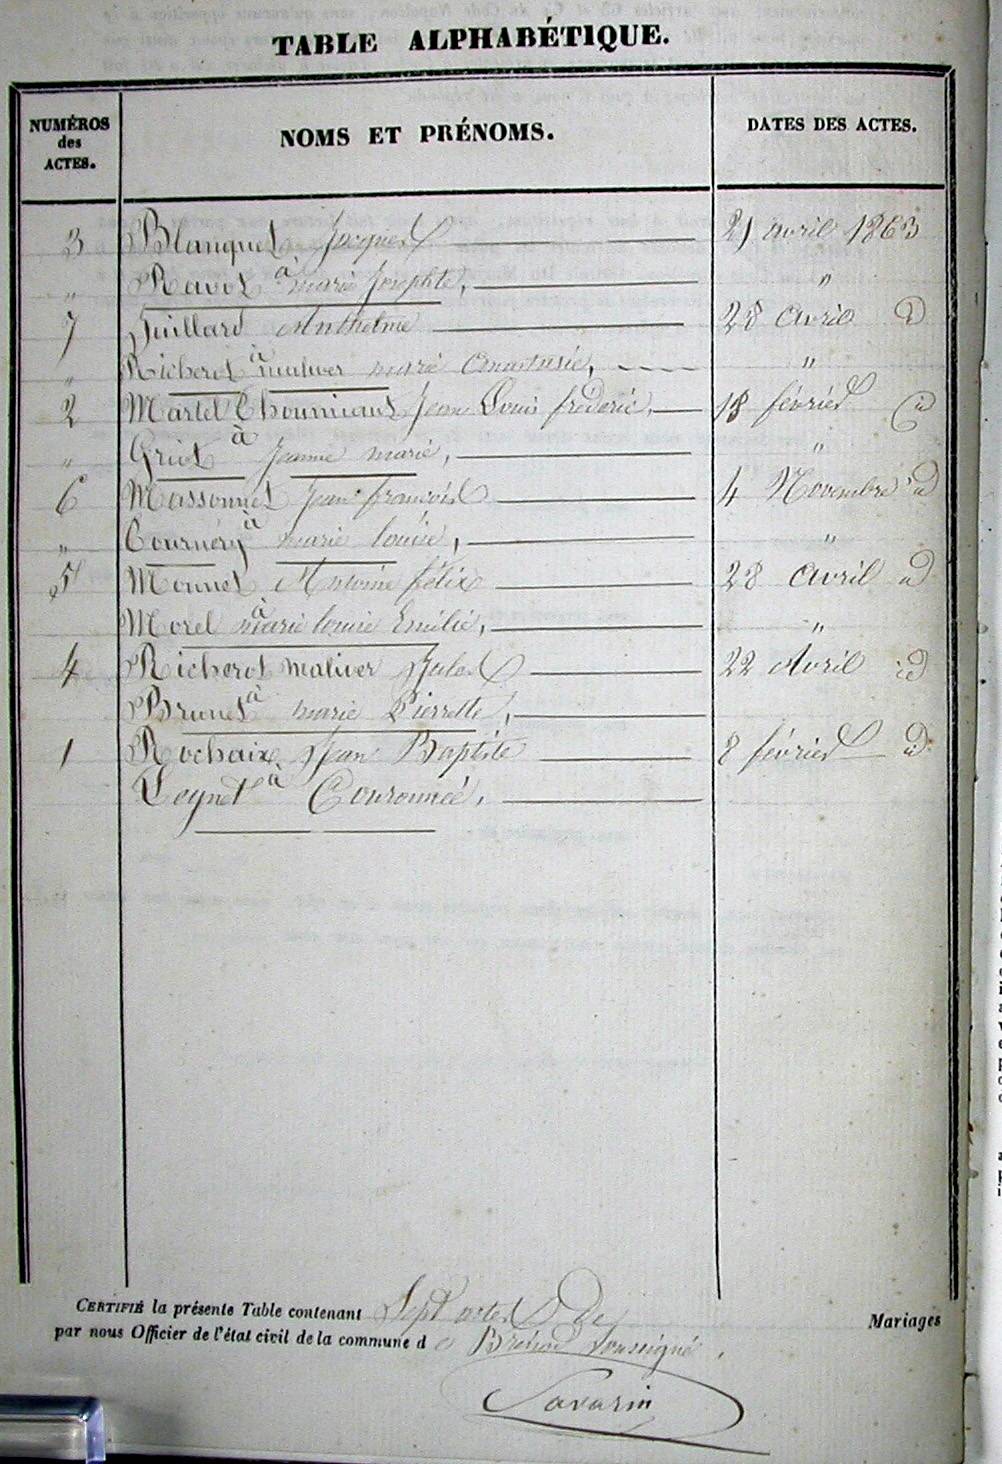 TABLE ALPHABÉTIQUE.
NUMÉROS des ACTES.
NOMS ET PRÉNOMS.
DATES DES ACTES.
3 Blanquet Jacques 21 avril 1863
" Ravot à marie Josephte, "
7 Juillard Anthelme 28 avril id
" Richerot à maliver marie anastasie, "
2 Martel Thoumiaus Jean Louis frédéric, 18 février id
" Griot à Jeanne marie, "
6 Massonnet Jean françois 4 Novembre id
" Cournéry à marie louise, "
5 Monnet Antoine félix 28 avril id
Morel à marie louise Emélie, "
4 Richerot maliver Jules 22 Avril id
Brunet à marie Pierrette, "
1 Rochaix Jean Baptiste 8 février id
Leynet à Couronnée,
CERTIFIÉ la présente Table contenant Sept actes De Mariages
par nous Officier de l'état civil de la commune d e soussigné,
Savarin